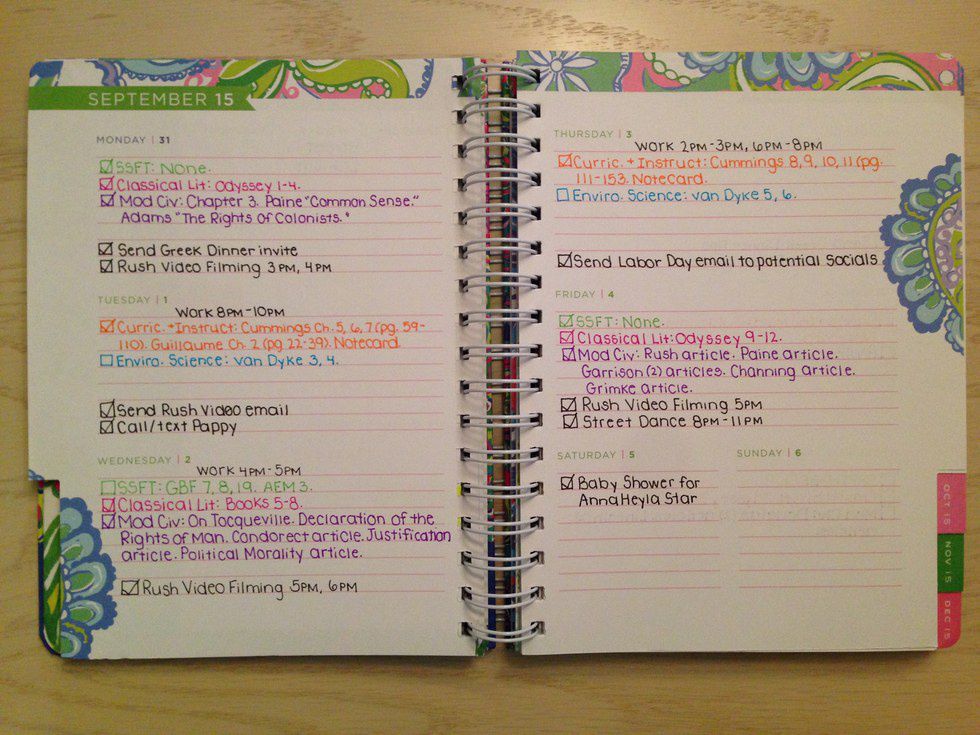 SEPTEMBER 15
MONDAY | 31
SSFT: None.
Classical Lit: Odyssey 1-4.
Mod Civ: Chapter 3. Paine "Common Sense."
Adams "The Rights of Colonists."
Send Greek Dinner invite
Rush Video Filming 3PM, 4PM
TUESDAY | 1
Work 8PM-10PM
Curric. + Instruct: Cummings Ch. 5, 6, 7 (pg. 59-
110). Guillaume Ch. 2 (pg 22-39). Notecard.
Enviro. Science: van Dyke 3, 4.
Send Rush Video email
Call/text Pappy
WEDNESDAY | 2
Work 4PM-5PM
SSFT: GBF 7, 8, 19. AEM 3.
Classical Lit: Books 5-8.
Mod Civ: On Tocqueville. Declaration of the
Rights of Man. Condorect article. Justification
article. Political Morality article.
Rush Video Filming 5PM, 6PM
THURSDAY | 3
Work 2PM-3PM, 6PM-8PM
Curric. + Instruct: Cummings 8, 9, 10, 11 (pg.
111-153. Notecard.
Enviro. Science: van Dyke 5, 6.
Send Labor Day email to potential socials
FRIDAY | 4
SSFT: None.
Classical Lit: Odyssey 9-12.
Mod Civ: Rush article. Paine article.
Garrison (2) articles. Channing article.
Grimke article.
Rush Video Filming 5PM
Street Dance 8PM-11PM
SATURDAY | 5
Baby Shower for
AnnaHeyla Star
SUNDAY | 6
OCT 15
NOV 15
DEC 15